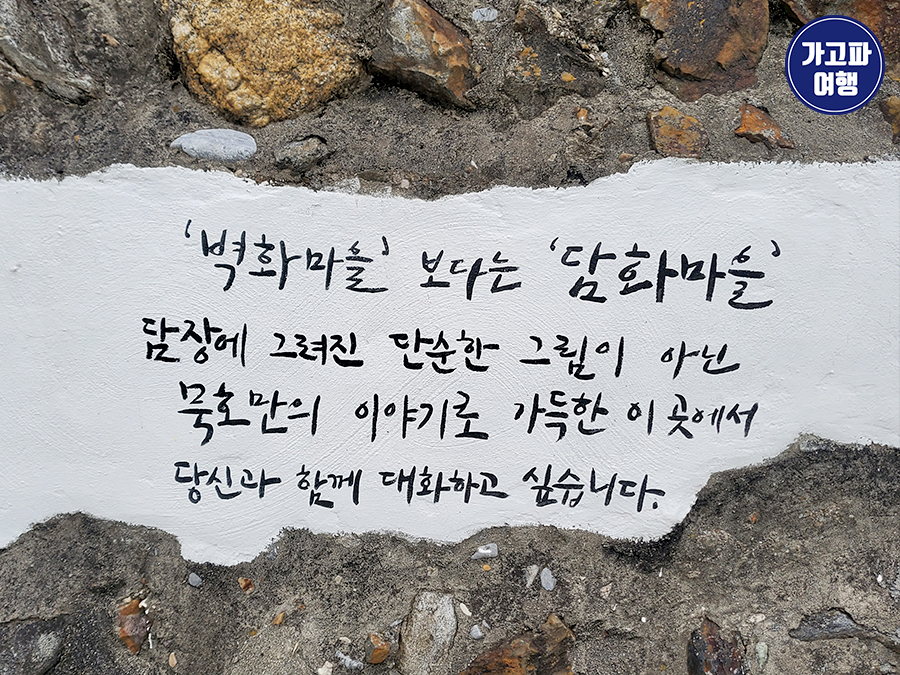 가고파
여행
'벽화마을' 보다는 '담화마을'
담장에 그려진 단순한 그림이 아닌
묵호만의 이야기로 가득한 이 곳에서
당신과 함께 대화하고 싶습니다.